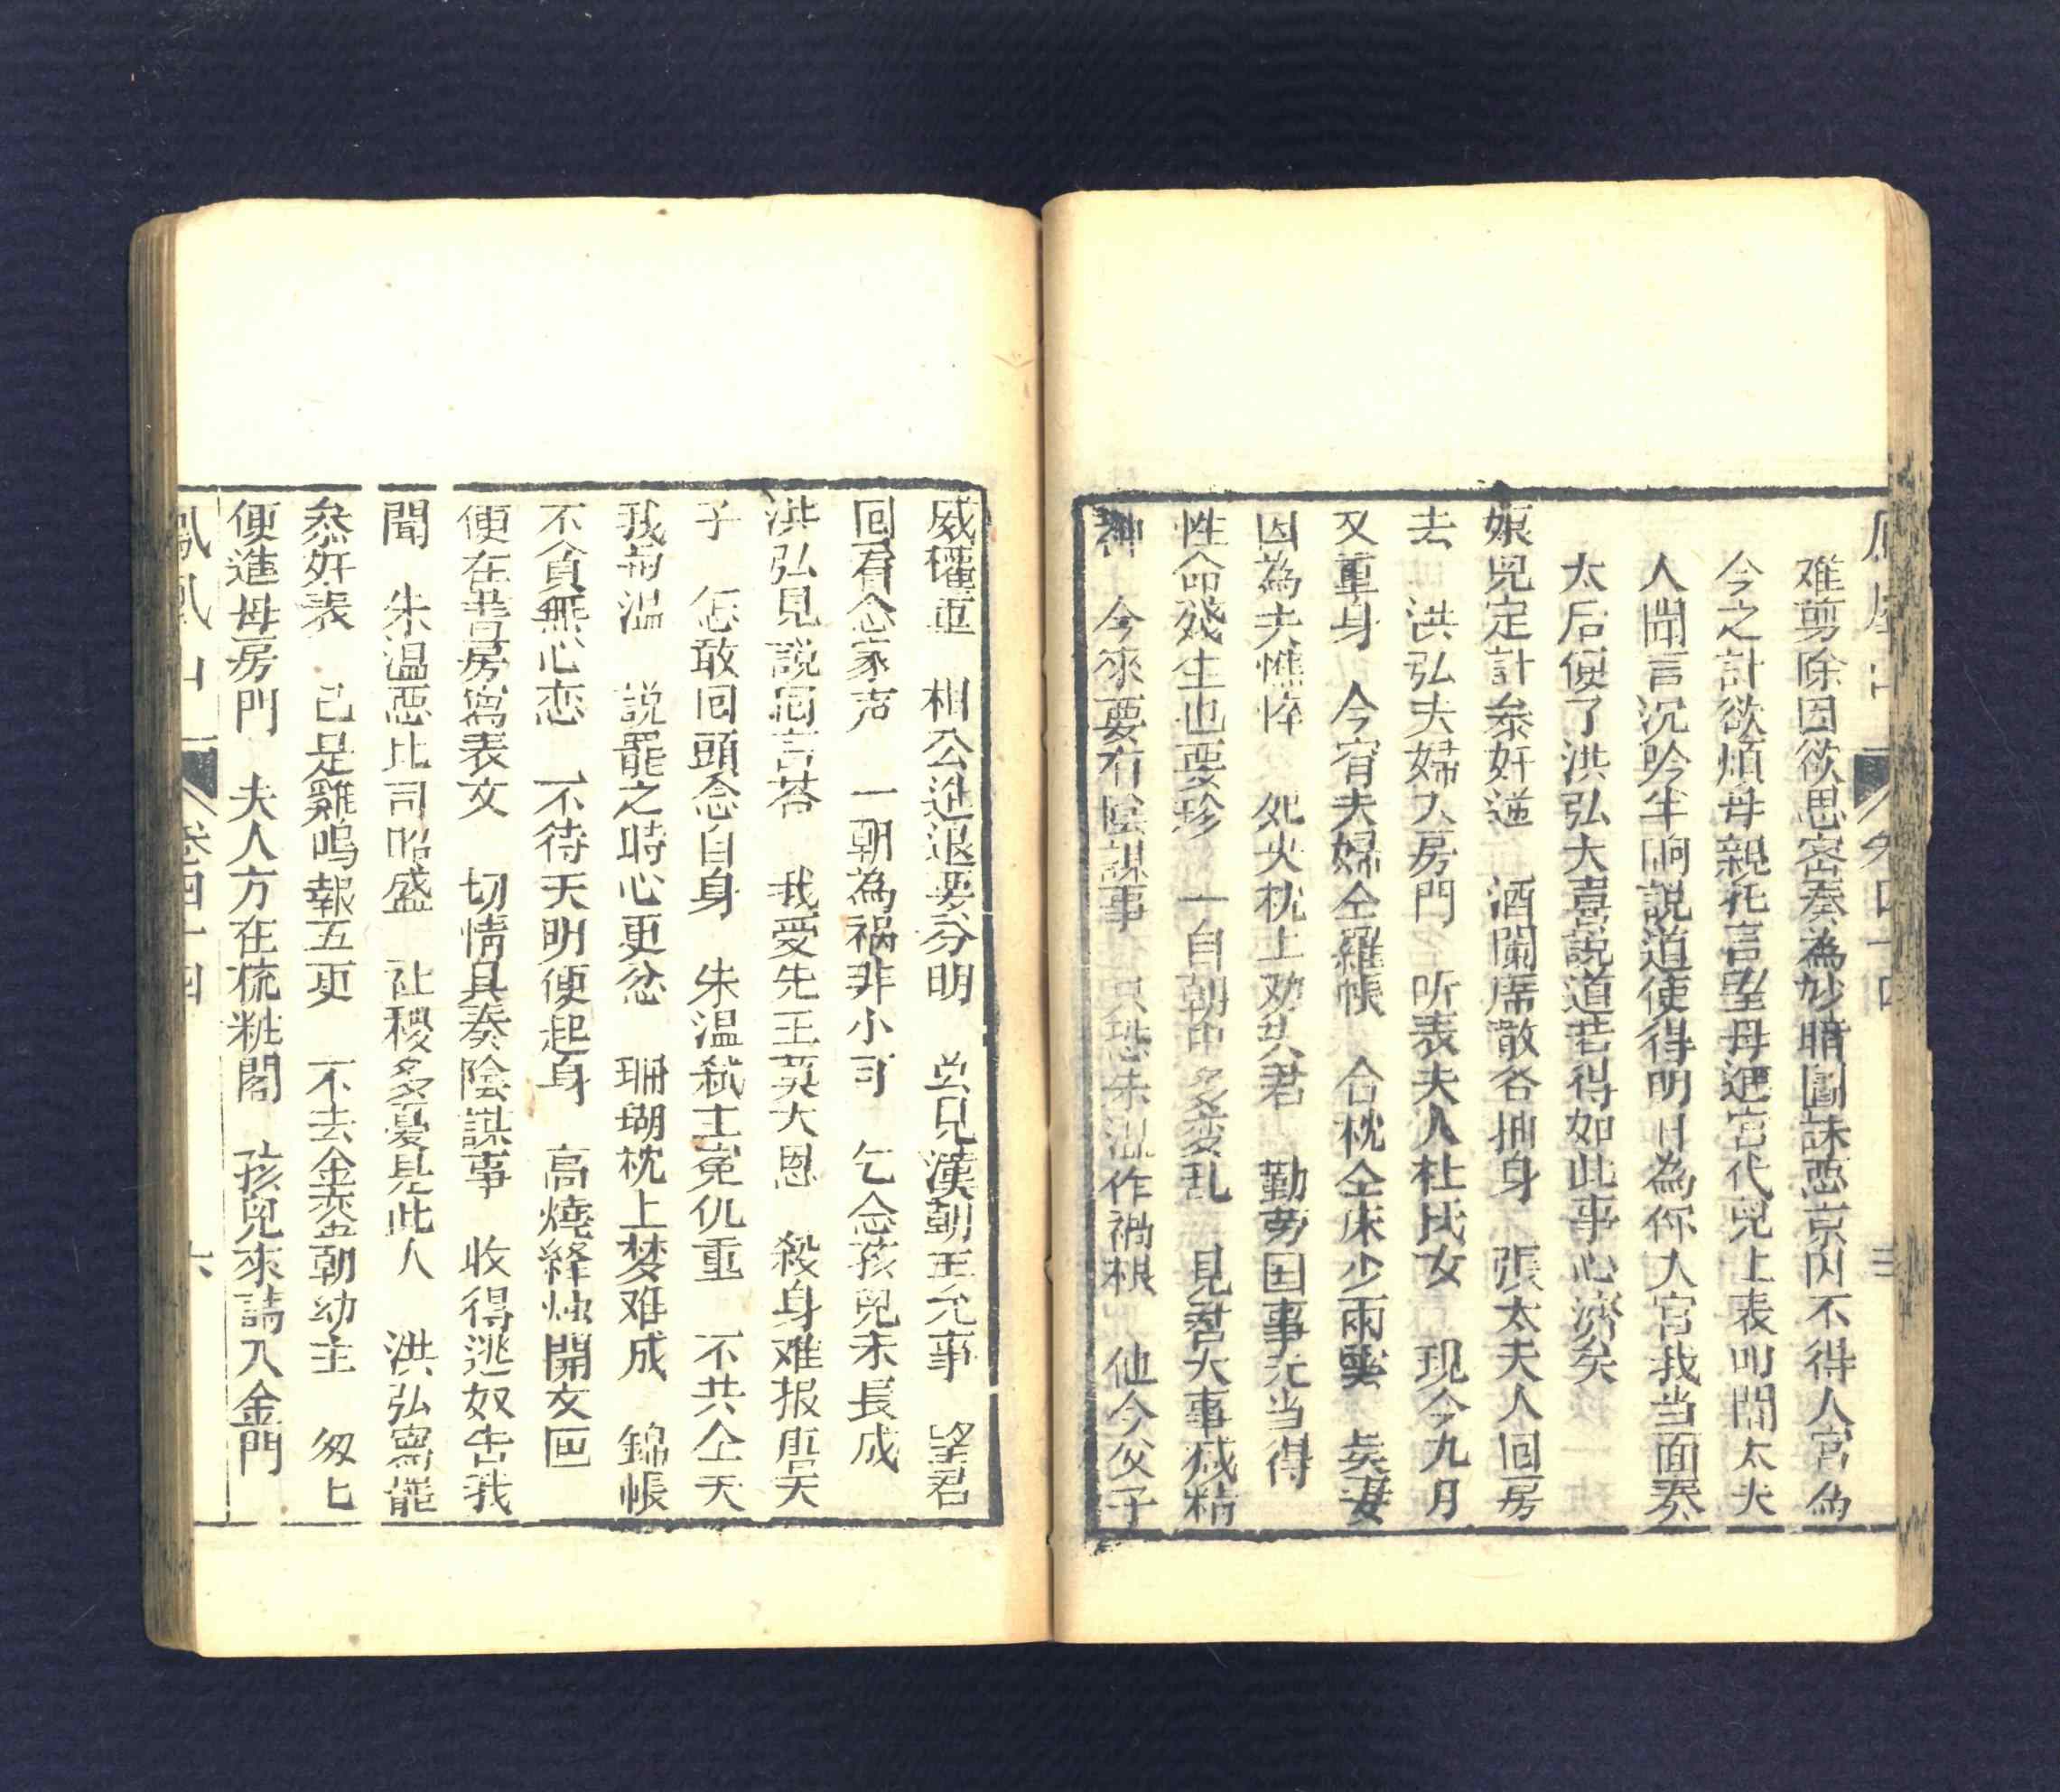 难剪除因欲思密奏為妙暗圖誅惡京内不得人宮為
今之計欲煩母親托言望母進宮代兒上表叩閽太夫
人聞言沉吟半晌説道使得明日為你入宮我当面奏
太后便了洪弘大喜説道若得如此事心濟矣
娘兒定計叅奸逆　酒闌席散各抽身　張太夫人囘房
去　洪弘夫婦入房門　听表夫人杜氏女　现今九月
又重身　今宵夫婦仝羅帳　合枕仝床少雨雲　矣妻
因為夫憔悴　处火枕上劝夫君　勤劳国事元当得
性命殘生也要珍　一自朝中多变乱　見君大事减精
神　今來要有陰謀事　只恐朱温作禍根　他今父子
威權重　相公進退要分明　岂見漢朝王允事　望君
囘看念家声　一朝為祸非小可　乞念孩兒未長成
洪弘見説囘言荅　我受先王莫大恩　殺身难报唐天
子　怎敢囘頭念自身　朱温弑主寃仇重　不共仝天
我與温　説罷之時心更忿　珊瑚枕上梦难成　錦帳
不貪無心恋　不待天明便起身　高燒絳烛開文匣
便在書房寫表文　切情具奏陰謀事　收得逃奴告我
聞　朱温惡比司昭盛　社稷多憂見此人　洪弘寫罷
叅奸表　己是雞鳴報五更　不去金銮朝幼主　匆匕
便進母房門　夫人方在梳粧閣　孩兒來請入金門
鳳凰山　卷四十四　六